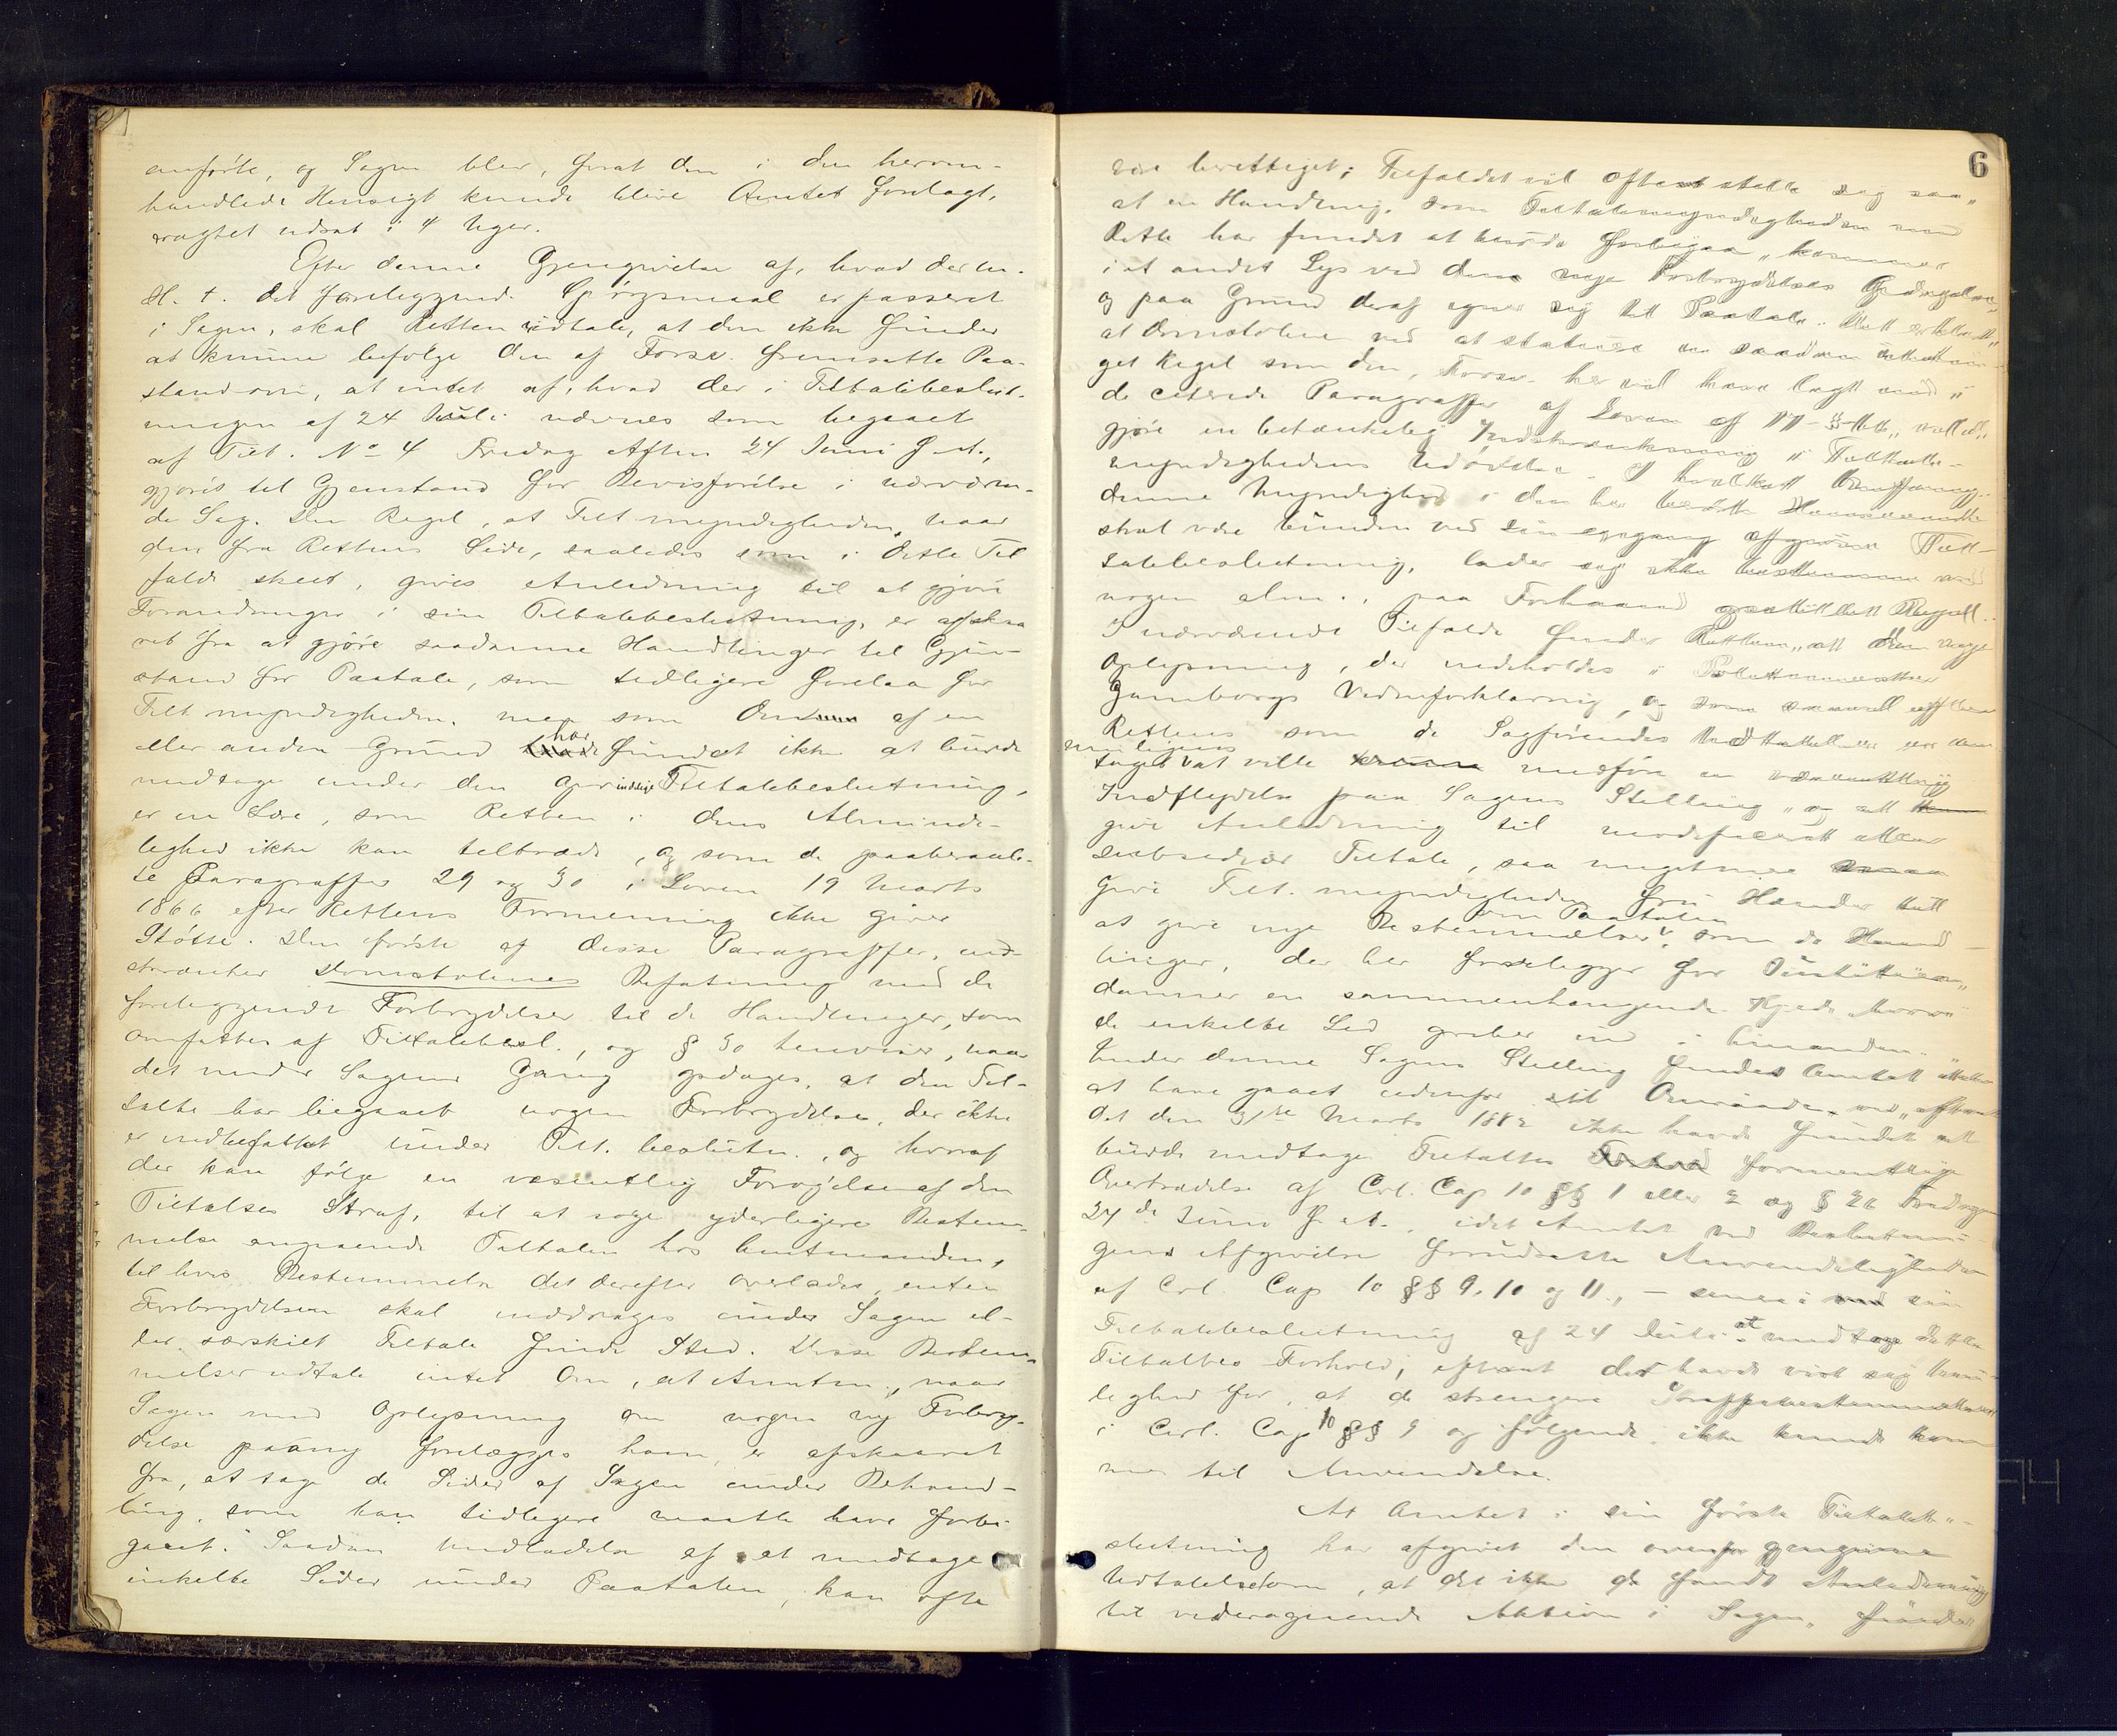 anførte, og Sagen blev, forat den i den herom-
handlede Hensigt kunde blive Amtet forelagt,
ragtet udsat i 4 Uger.
Efter denne Gjengivelse af, hvad der m.
H. t. det foreliggende Spörgsmaal er passeret
i Sagen, skal Retten udtale, at den ikke finder
at kunne befölge den af Forsv. fremsatte Paa-
stand om, at intet af, hvad der i Tiltalebeslut-
ningen af 24 Juli nævnes som begaaet
af Tilt. No 4 Fredag Aften 24 Juni f. A.,
gjöres til Gjenstand for Bevisförelse i nærværen-
de Sag. Den Regel, at Tilt. myndigheden, naar
den fra Rettens Side, saaledes som i dette Til
fælde skeet, gives Anledning til at gjöre
Forandringer i sin Tiltalebeslutning, er afskaa
ret fra at gjöre saadanne Handlinger til Gjen-
stand for Paatale, som tidligere forelaa for
Tilt. myndigheden, men som den af en
eller anden Grund har fundet ikke at burde
medtage under den oprindelige Tiltalebeslutning,
er en Lære, som Retten i dens Alminde-
lighed ikke kan tiltræde, og som de paaberaab-
te Paragraffer 29 og 30 i Loven 19 Marts
1866 efter Rettens Formening ikke giver
Stötte. Den förste af disse Paragraffer, ind-
skrænker Domstolenes Befatning med de
foreliggende Forbrydelser til de Handlinger, som
omfattes af Tiltalebesl., og § 30 henviser, naar
det under Sagens Gang opdages, at den Til-
talte har begaaet nogen Forbrydelse, der ikke
er indbefattet under Tilt. beslutn., og hvoraf
der kan fölge en væsentlig Foröjelse af den
Tiltaltes Straf, til at söge yderligere Bestem-
melse angaaende Tiltalen hos Amtmanden,
til hvis Bestemmelse det derefter overlades, enten
Forbrydelsen skal inddrages under Sagen el-
ler særskilt Tiltale finde Sted. Disse Bestem-
melser udtale intet om, at Amtm., naar
Sagen med Oplysning om nogen ny Forbry-
delse paany forelægges ham, er afskaaret
fra, at tage de Sider af Sagen under Behand-
ling, som han tidligere maatte have forbi-
gaaet. Saadan Undladelse af at medtage
enkelte Sider under Paatalen, kan ofte
6
være berettiget; Tilfældet vil oftest stille sig saa,
at en Handling, som Tiltalemyndigheden med
Rette har fundet at burde forbigaa, kommer
i et andet Lys ved den nye Forbrydelses Opdagelse
og paa Grund deraf egner sig til Paatale. Det er klart,
at Domstolene ved at statuere en saadan
get Regel som den, Forsv. her vil have lagt ind i
de citerede Paragraffer af Loven af vilde
gjöre en betænkelig Indskrænkning i Tiltale-
myndighedens Udövelse. I hvilket Omfang
denne Myndighed i den her berörte Henseende
skal være bunden ved sin engang afgivne Til-
talebeslutning, lader sig ikke bestemme ved
nogen alm., paa Forhaand opstillet Regel.
I nærværende Tilfælde finder Retten, at den nye
Oplysning, der indeholdes i Politimester
Gamborgs Vidneforklaring, og som saavel efter
Rettens som de Sagförendes Udtalelser
toges at ville medföre en væsentlig
Indflydelse paa Sagens Stilling, og at
give Anledning til modificeret eller
subsidiær Tiltale, saa meget mere
give Tilt. myndigheden frie Hænder til
at give nye Bestemmelser om Paatalen, som de Hand-
linger, der her foreligger for
danner en sammenhængende Kjede, hvori
de enkelte Led griber ind i hinanden.
Under denne Sagens Stilling findes Amtet ikke
at have gaaet udenfor sit Omraade, ved, efterat
det den 31te Marts 1882 ikke havde fundet at
burde medtage Tiltaltes formentlige
Overtrædelse af Crl. Cap 10 §§ 1 eller 2 og § 26 Fredag
24de Juni f. A., idet Amtet ved Beslutnin-
gens Afgivelse forudsatte Anvendeligheden
af Crl. Cap 10 §§ 9, 10 og 11, – senere i sin
Tiltalebeslutning af 24 Juli at medtage dette
Tiltaltes Forhold, efterat det havde vist sig
lighed for, at de strengere Straffebestemmelser
i Crl. Cap 10 §§ 9 og fölgende ikke kunde kom
me til Anvendelse.
At Amtet i sin förste Tiltalebe-
slutning har afgivet den ovenfor gjengivne
Udtalelse om, at det ikke fandt Anledning
til videregaaende Aktion i Sagen, finder